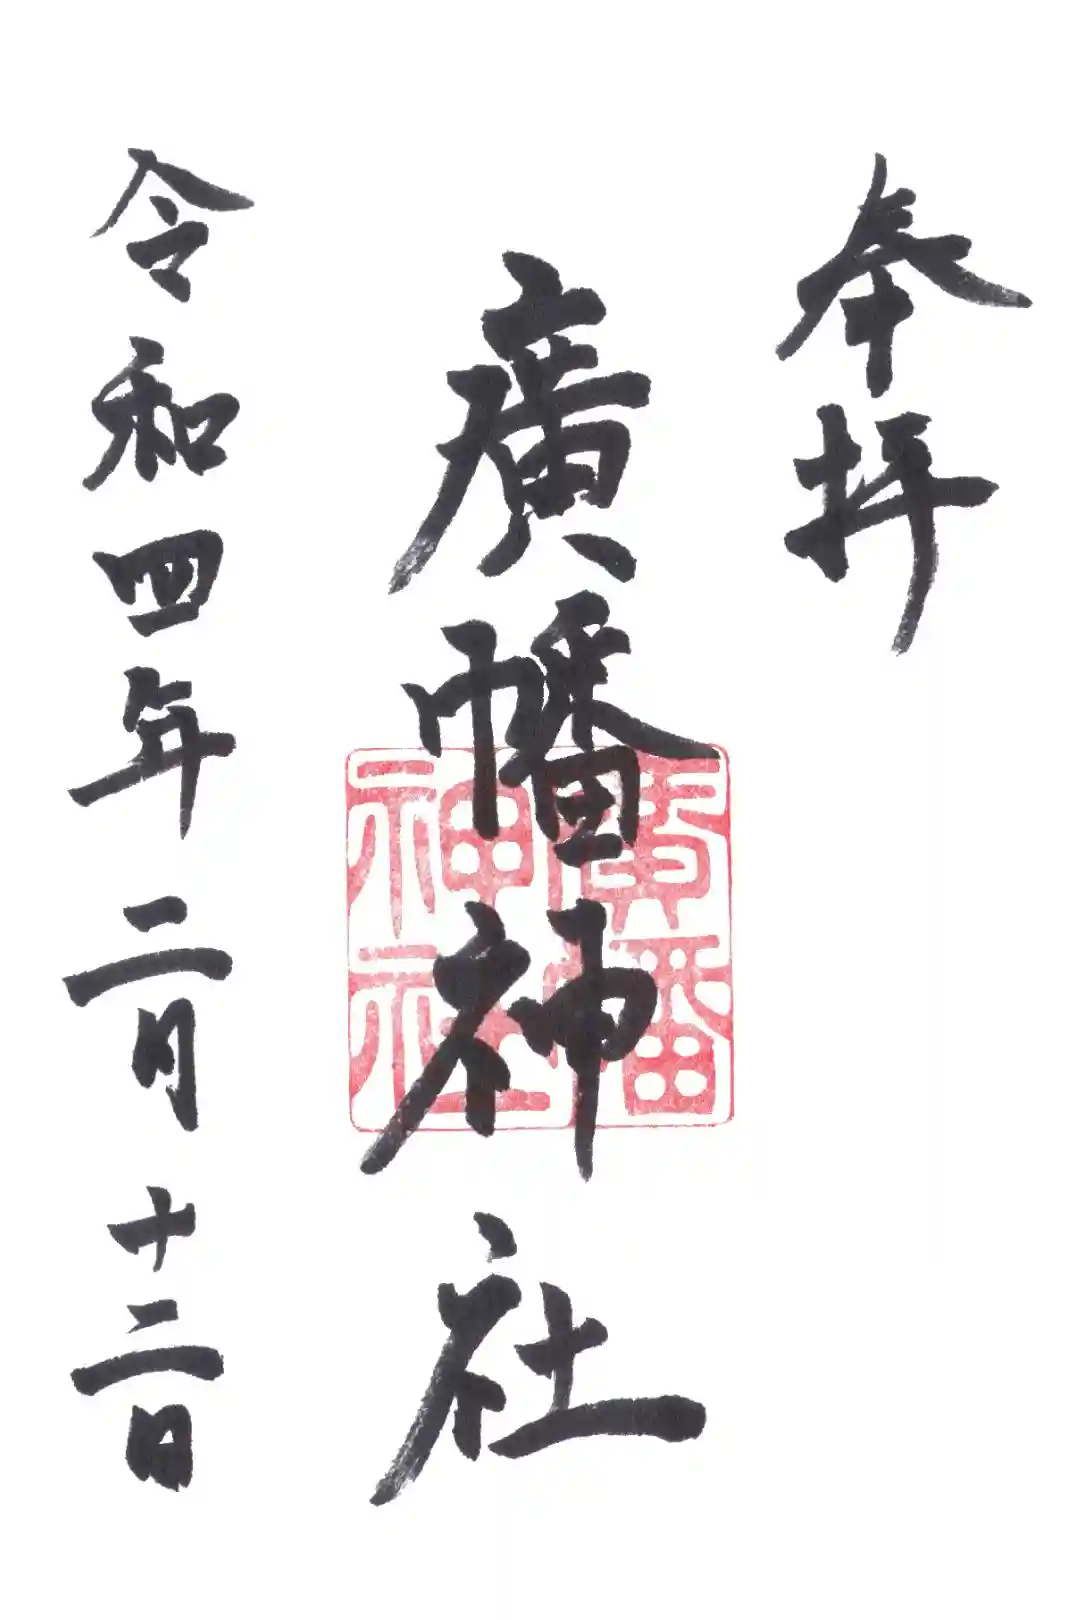 奉拝
廣幡神社
廣幡神社
令和四年二月十二日